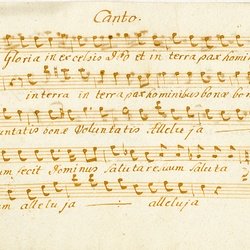 Canto.
Gloria in excelsis Deo et in terra pax homini
in terra in terra pax hominibus bonæ bon
untatis bonæ Voluntatis Alleluja
um fecit Dominus Salutare suum Saluta
um alleluja alleluja